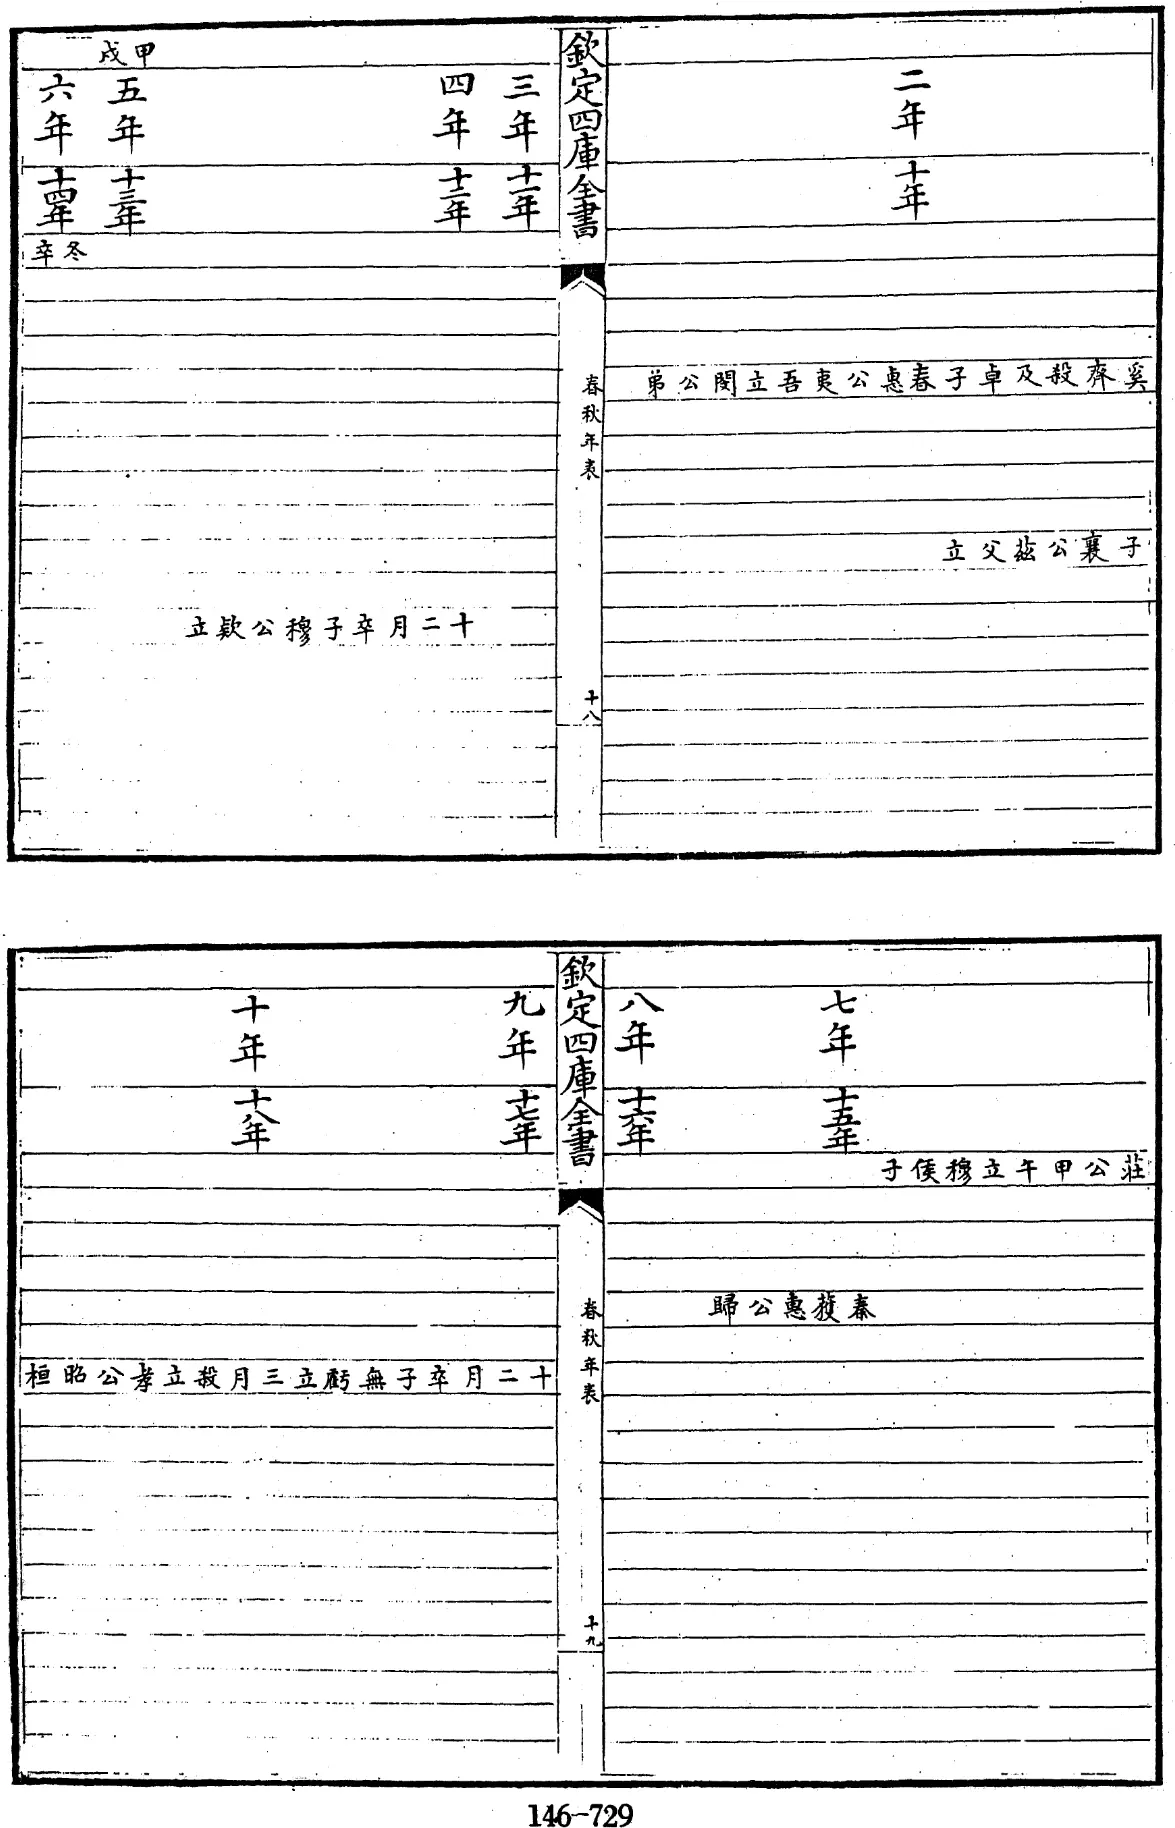 二年
十年
奚齊殺及卓子春惠公夷吾立閔公弟
子襄公茲父立
欽定四庫全書
春秋年表
十八
三年
十一年
四年
十二年
十二月卒子穆公欵立
甲戌
五年
十三年
六年
十四年
冬卒
莊公甲午立穆侯子
七年
十五年
秦獲惠公歸
八年
十六年
欽定四庫全書
春秋年表
十九
九年
十七年
十二月卒子無虧立三月殺立孝公昭桓
十年
十八年
146-729